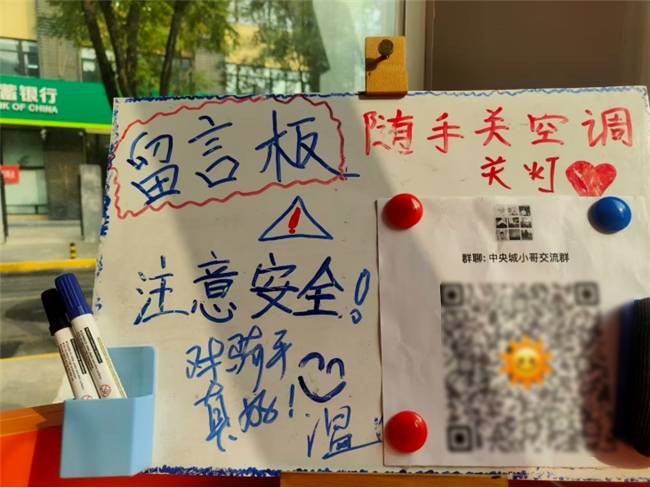 蓄银行
NK OF CHINA
留言板
随手关空调
关灯
群聊: 中央城小哥交流群
注意安全!
对骑手
真好!
温